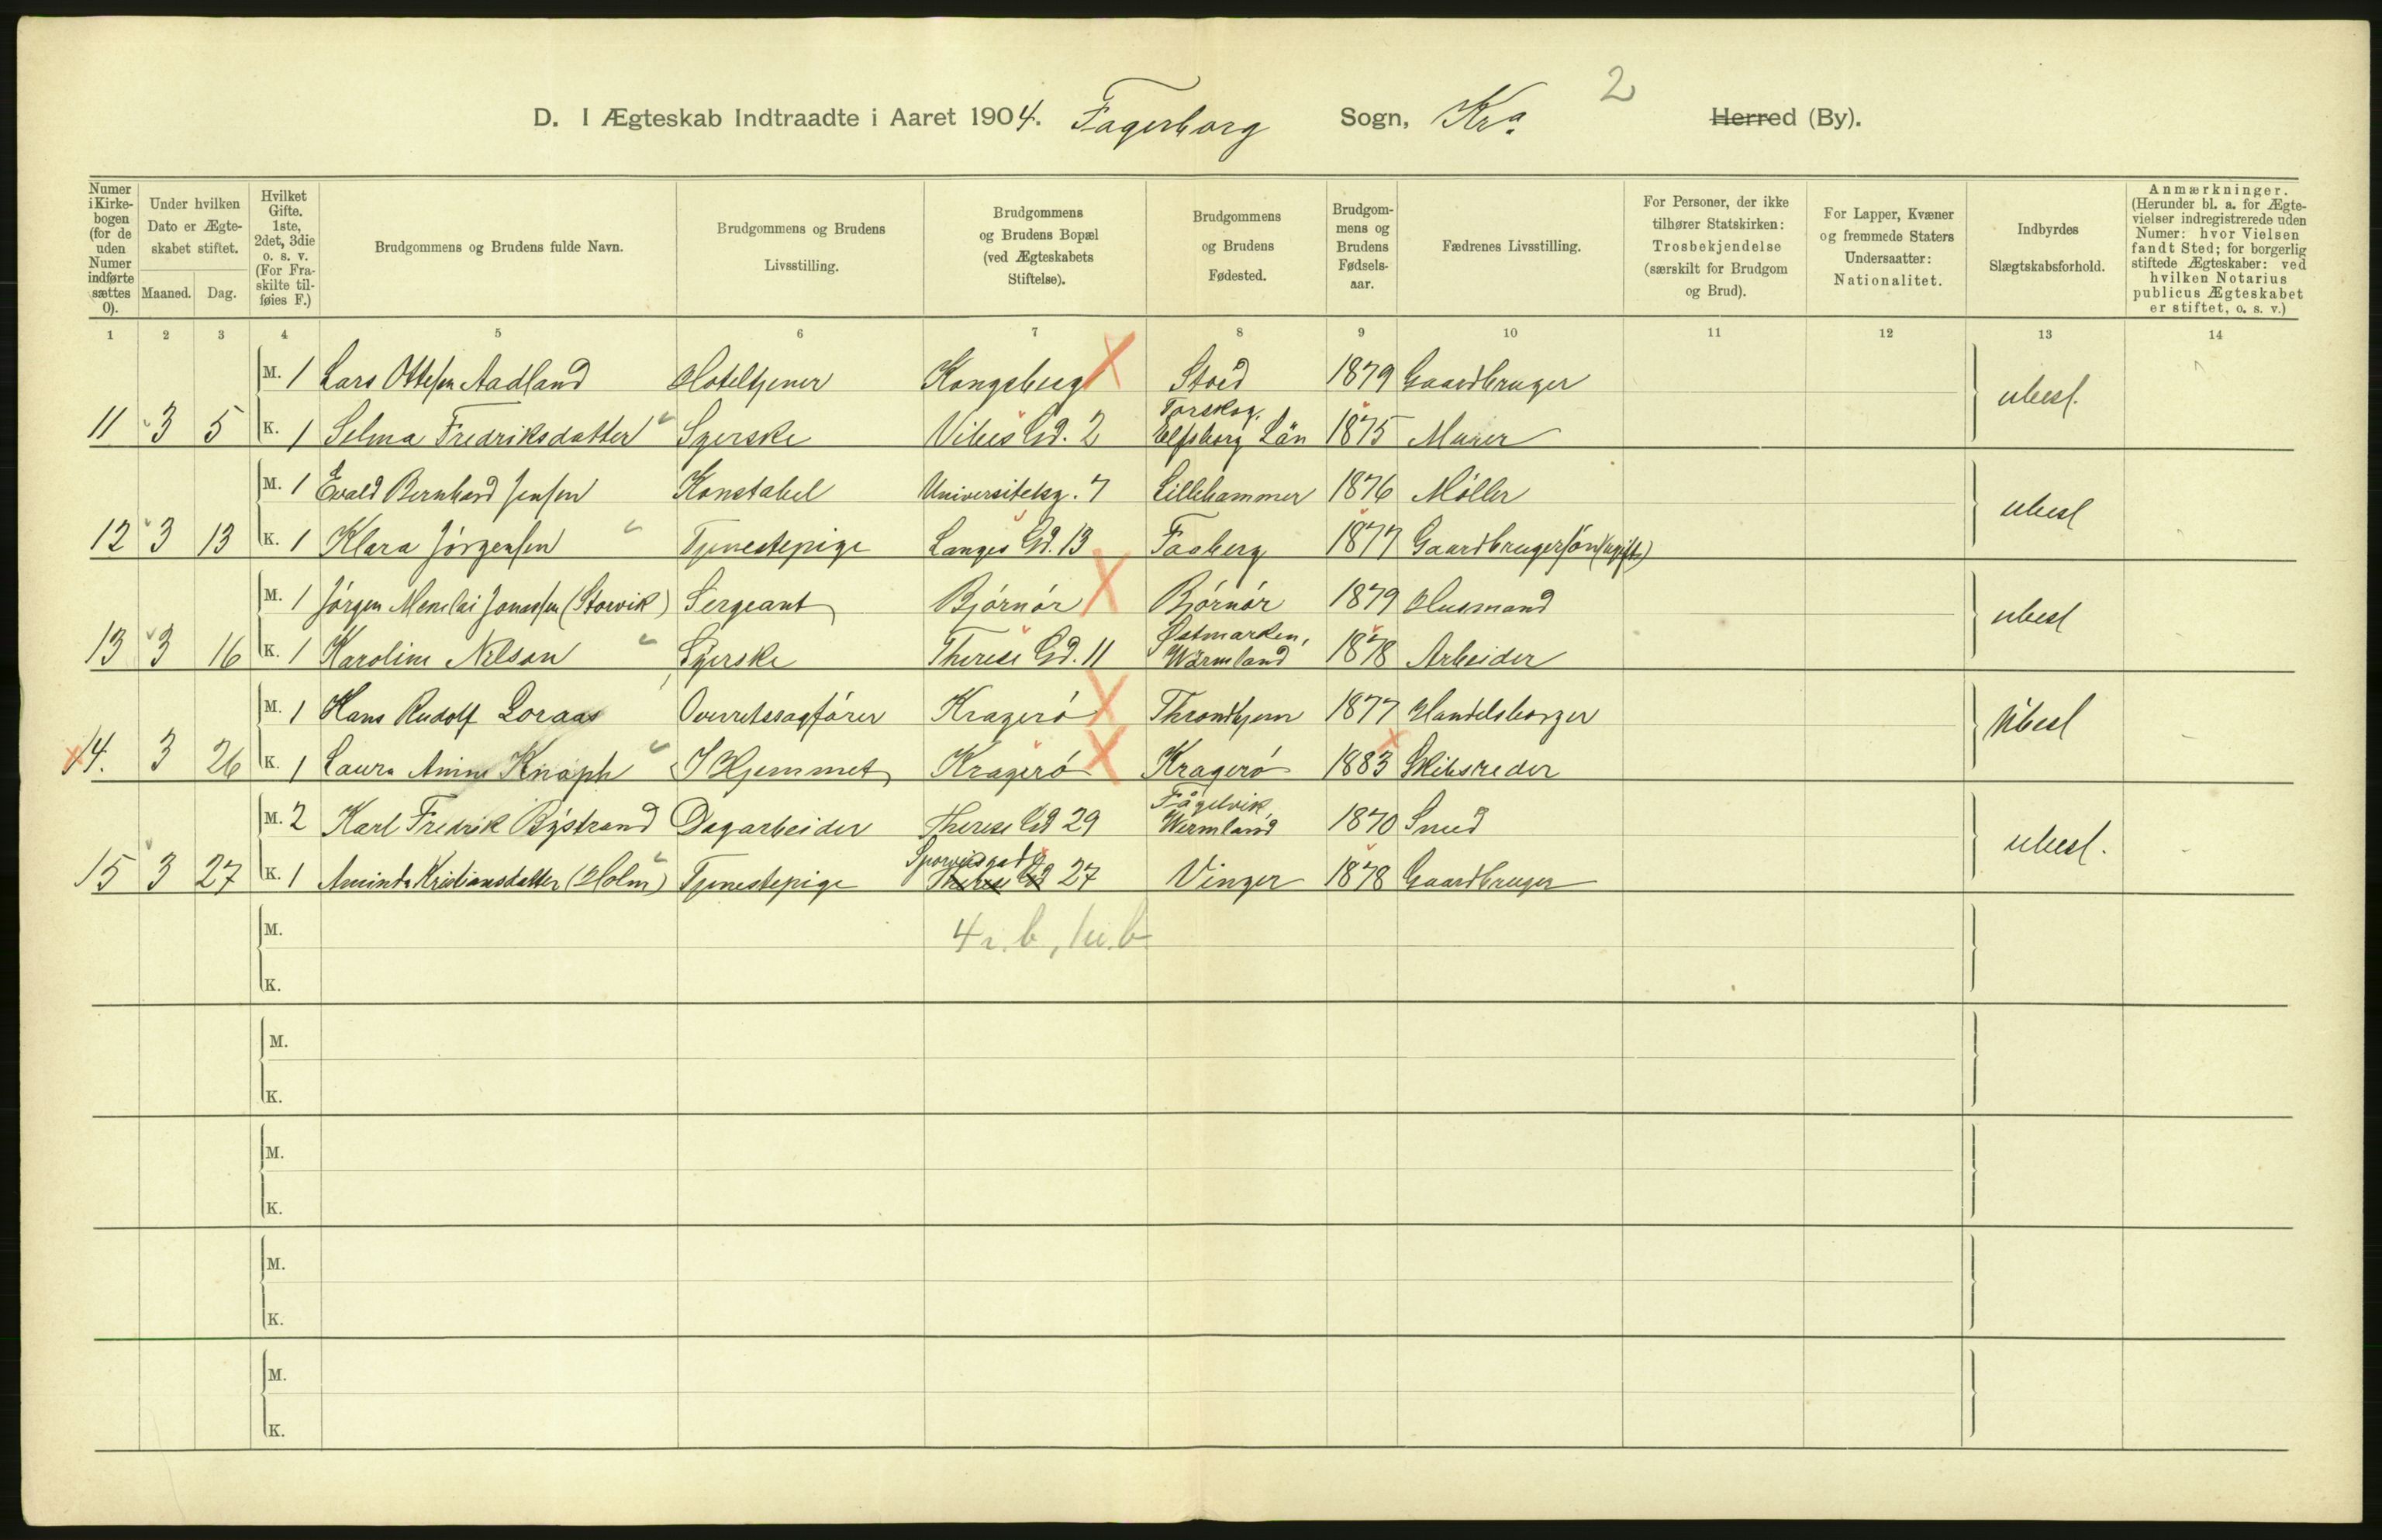 2
D. I Ægteskab Indtraadte i Aaret 1904. Fagerborg Sogn, Kra. Herred (By).
Numer i Kirkebogen (for de uden Numer indførte sættes 0).
Under hvilken Dato er Ægteskabet stiftet.
Maaned. Dag.
Hvilket Gifte. 1ste, 2det, 3die o. s. v. (For Fraskilte tilføies F.)
Brudgommens og Brudens fulde Navn.
Brudgommens og Brudens Livsstilling.
Brudgommens og Brudens Bopæl (ved Ægteskabets Stiftelse).
Brudgommens og Brudens Fødested.
Brudgommens og Brudens Fødselsaar.
Fædrenes Livsstilling.
For Personer, der ikke tilhører Statskirken: Trosbekjendelse (særskilt for Brudgom og Brud).
For Lapper, Kvæner og fremmede Staters Undersaatter: Nationalitet.
Indbyrdes Slægtskabsforhold.
Anmærkninger. (Herunder bl. a. for Ægtevielser indregistrerede uden Numer: hvor Vielsen fandt Sted; for borgerlig stiftede Ægteskaber: ved hvilken Notarius publicus Ægteskabet er stiftet, o. s. v.)
1 2 3 4 5 6 7 8 9 10 11 12 13 14
M. 1 Lars Ottesen Aadland Hoteltjener Kongsberg Stord 1879 Gaardbruger ubesl.
11 3 5 K. 1 Selma Fredriksdatter Syerske Vibes Gd. 2 Torskog, Elfsborg Län 1875 Murer
M. 1 Evald Bernhard Jensen Konstabel Universitetsg. 7 Lillehammer 1876 Møller ubesl
12 3 13 K. 1 Klara Jørgensen Tjenestepige Langes Gd. 13 Faaberg 1877 Gaardbrugersøn (ugift)
M. 1 Jørgen Menelai Jonassen (Storvik) Sergeant Bjørnør Bjørnør 1879 Husmand ubesl
13 3 16 K. 1 Karoline Nelson Syerske Therese Gd. 11 Østmarken, Wärmland 1878 Arbeider
M. 1 Hans Rudolf Loraas Overretssagfører Kragerø Throndhjem 1877 Handelsborger Ubesl
14. 3 26 K. 1 Laura Anine Knaph I Hjemmet Kragerø Kragerø 1883 Skibsreder
M. 2 Karl Fredrik Bystrand Dagarbeider Therese Gd 29 Fågelvik, Wermland 1870 Smed ubesl.
15 3 27 K. 1 Aminda Kristiansdatter (Holm) Tjenestepige Sporveisgade Therese Gd 27 Vinger 1878 Gaardbruger
M. 4 i. b, 1 u. b.
K.
M.
K.
M.
K.
M.
K.
M.
K.